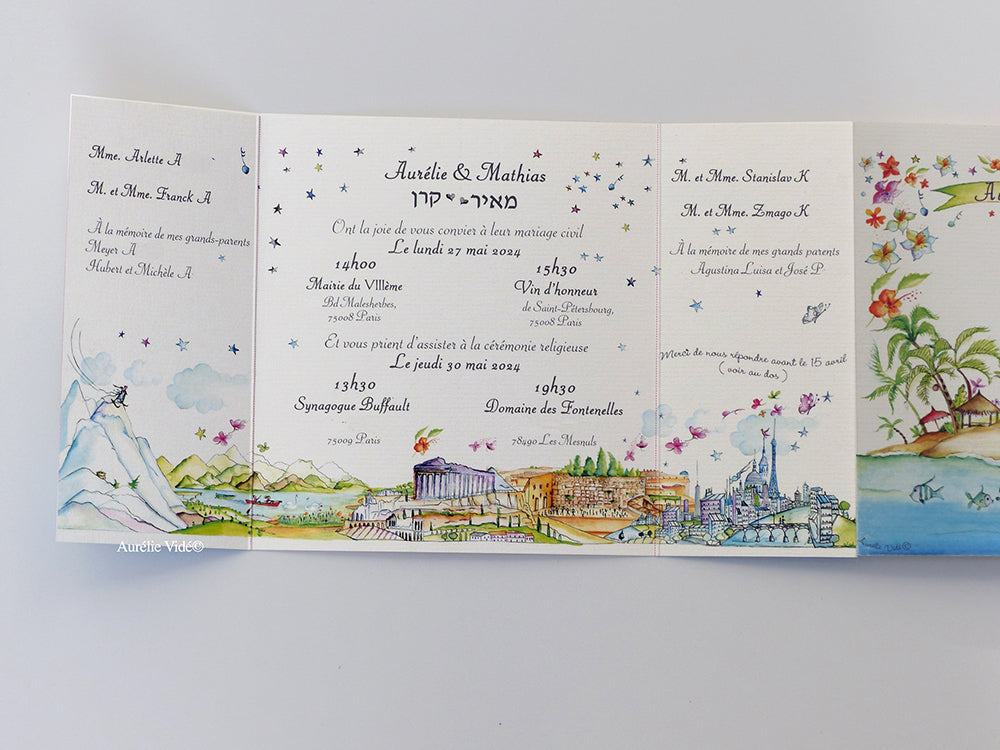 Mme. Arlette A
M. et Mme. Franck A
À la mémoire de mes grands-parents
Meyer A
Hubert et Michèle A
Aurélie & Mathias
מאיר קרן
Ont la joie de vous convier à leur mariage civil
Le lundi 27 mai 2024
14h00
Mairie du VIIIème
Bd Malesherbes,
75008 Paris
15h30
Vin d'honneur
de Saint-Pétersbourg,
75008 Paris
Et vous prient d'assister à la cérémonie religieuse
Le jeudi 30 mai 2024
13h30
Synagogue Buffault
75009 Paris
19h30
Domaine des Fontenelles
78490 Les Mesnuls
M. et Mme. Stanislav K
M. et Mme. Zmago K
À la mémoire de mes grands parents
Agustina Luisa et José P
Merci de nous répondre avant le 15 avril
( voir au dos )
Au
Aurélie Vidé©
Aurélie Vidé©